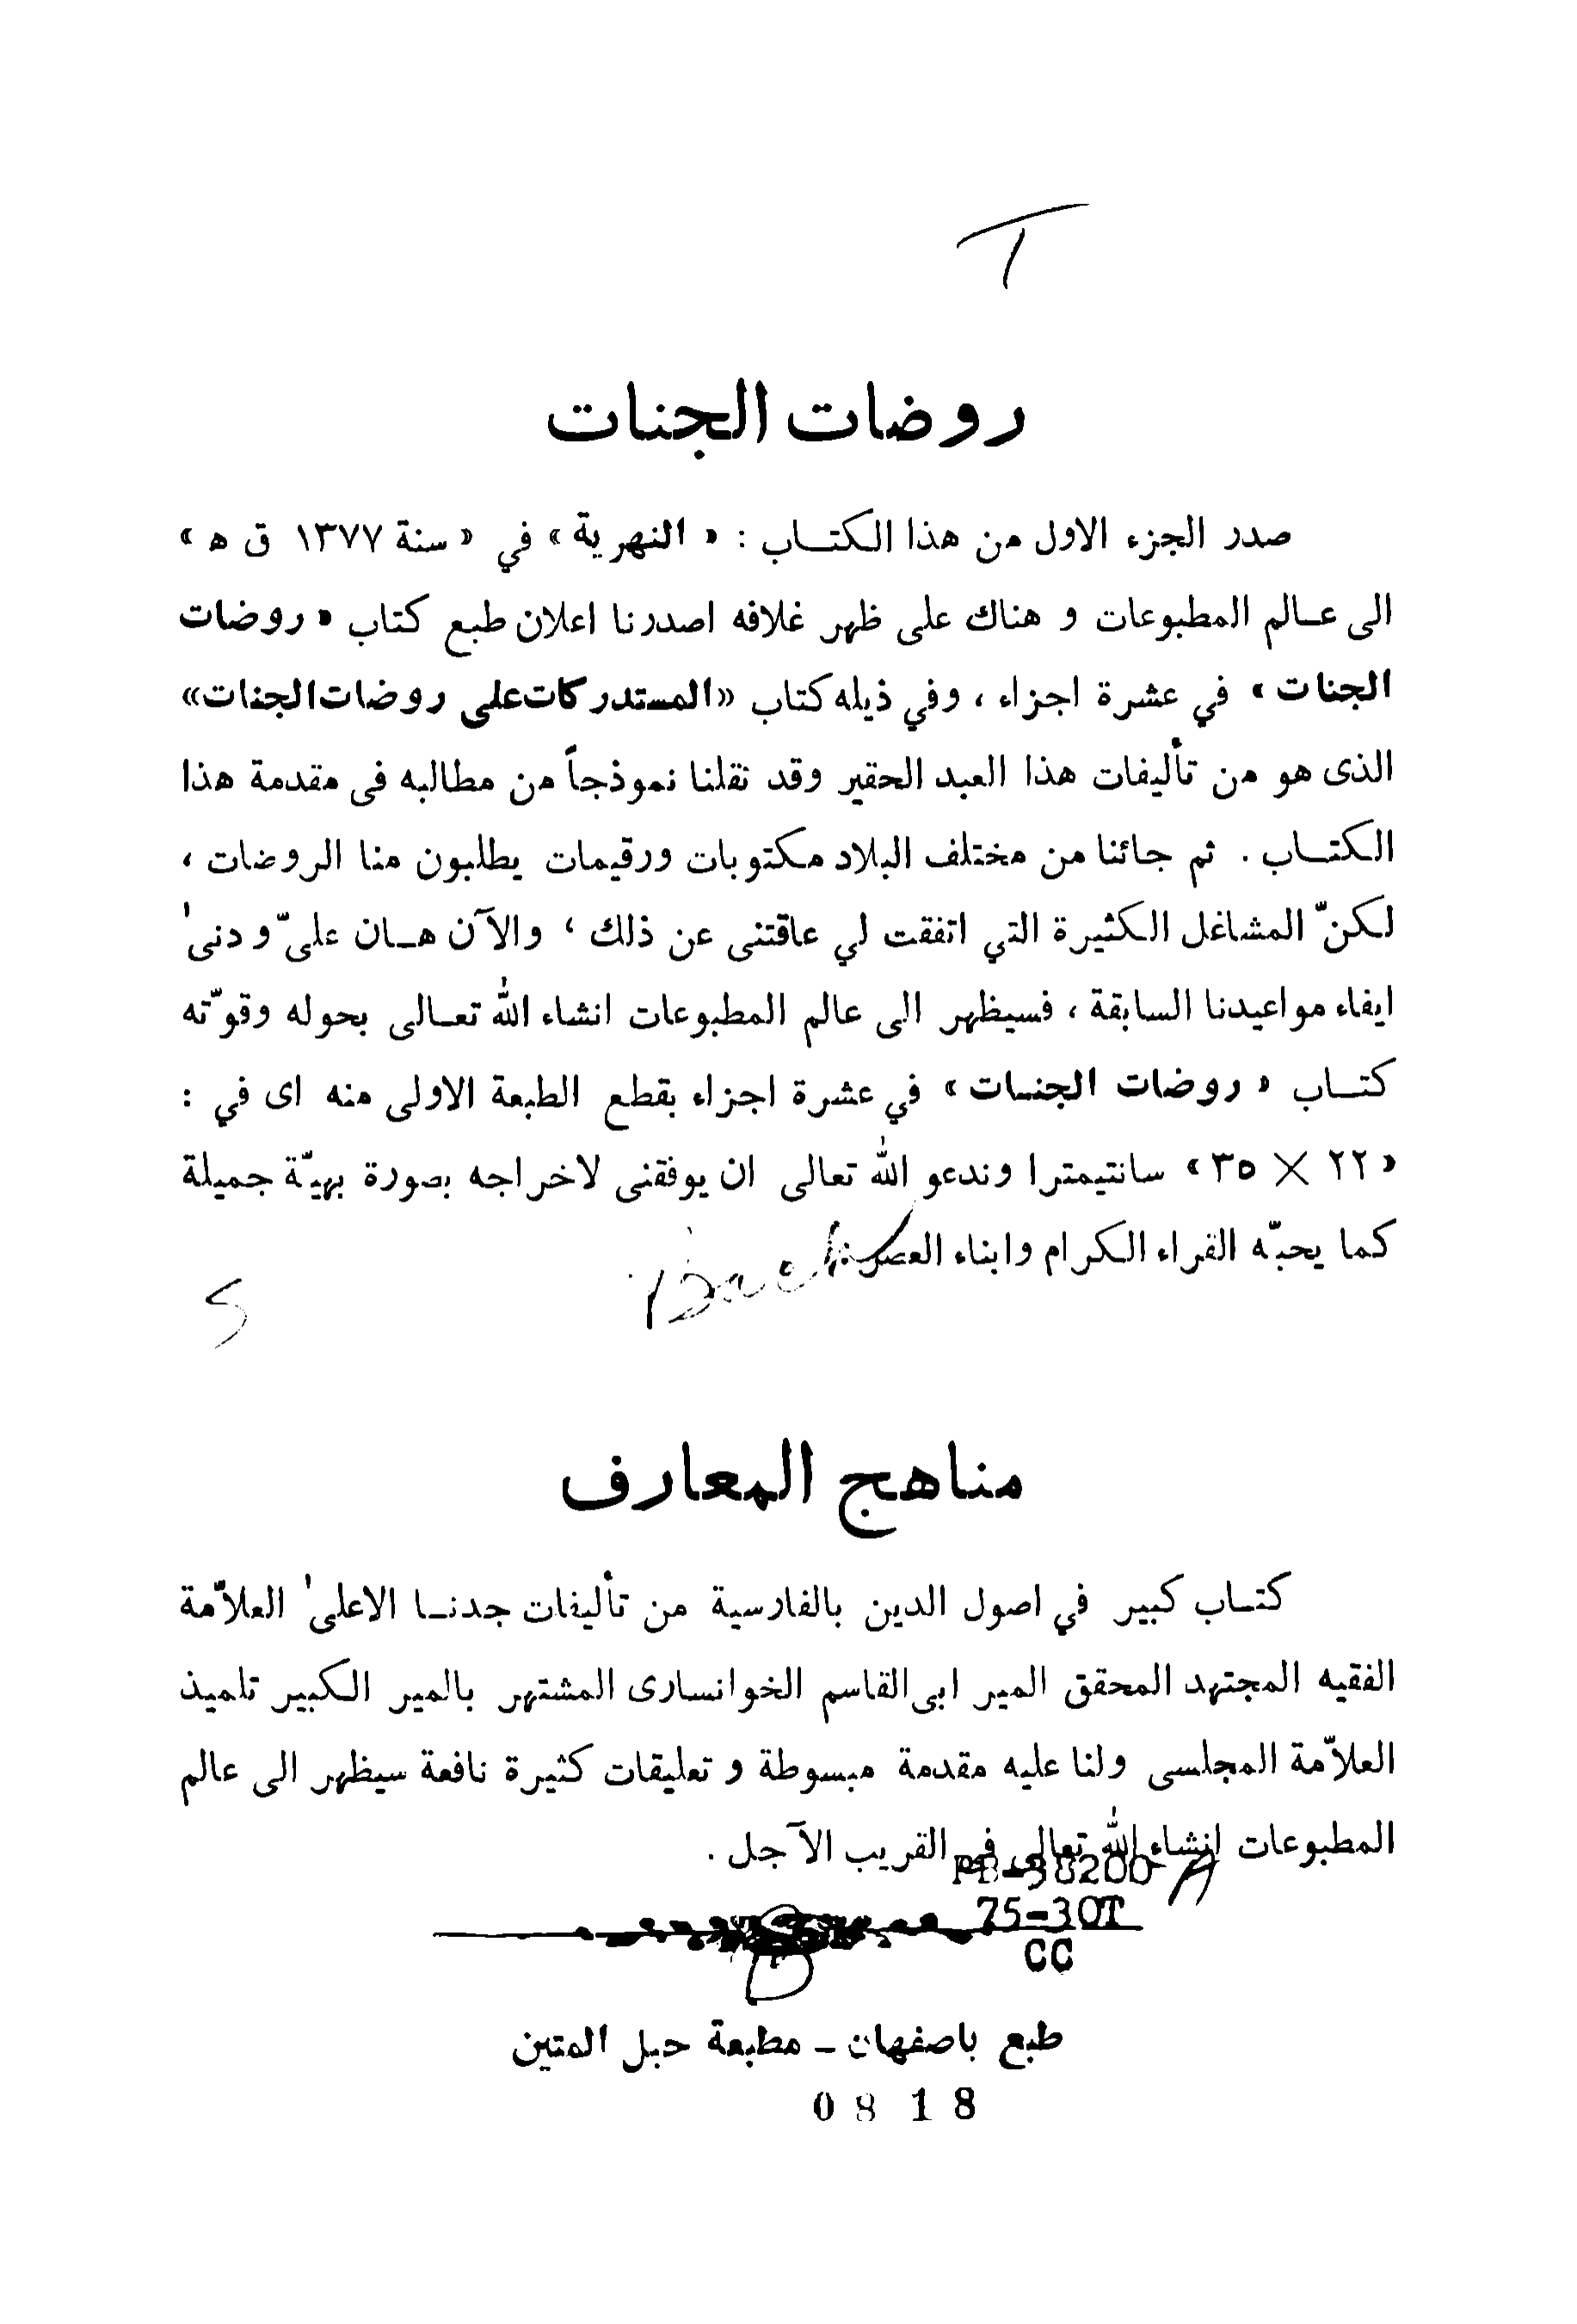 T
روضات الجنات
صدر الجزء الاول من هذا الكتـــاب : « النهرية » في « سنة ١٣٧٧ ق ه »
الى عـــالم المطبوعات و هناك على ظهر غلافه اصدرنا اعلان طبع كتاب « روضات
الجنات » في عشرة اجزاء ، وفي ذيله كتاب «المستدركات على روضات الجنات»
الذى هو من تأليفات هذا العبد الحقير وقد نقلنا نموذجاً من مطالبه فى مقدمة هذا
الكتـــاب . ثم جائنا من مختلف البلاد مكتوبات ورقيمات يطلبون منا الروضات ،
لكنّ المشاغل الكثيرة التي اتفقت لي عاقتنى عن ذلك ، والآن هـــان علىّ و دنى
ايفاء مواعيدنا السابقة ، فسيظهر الى عالم المطبوعات انشاء الله تعـــالى بحوله وقوّته
كتـــاب « روضات الجنـــات » في عشرة اجزاء بقطع الطبعة الاولى منه اى في :
« ٢٢ × ٣٥ » سانتيمترا وندعو الله تعالى ان يوفقنى لاخراجه بصورة بهيّة جميلة
كما يحبّه القراء الكرام وابناء العصر
Back
S
مناهج المعارف
كتـــاب كبير في اصول الدين بالفارسية من تأليفات جدنـــا الاعلى العلاّمة
الفقيه المجتهد المحقق المير ابى القاسم الخوانسارى المشتهر بالمير الكبير تلميذ
العلاّمة المجلسى ولنا عليه مقدمة مبسوطة و تعليقات كثيرة نافعة سيظهر الى عالم
المطبوعات انشاء الله تعالى في القريب الآجل .
75-30T
CC
طبع باصفهان - مطبعة حبل المتين
0 8 1 8